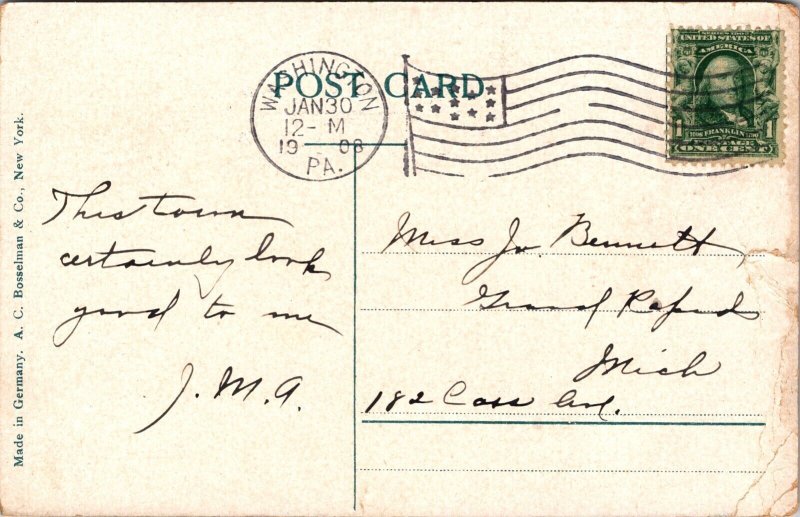 POST CARD
WASHINGTON
JAN 30
12- M
19 08
PA.
SERIES 1902
UNITED STATES OF
AMERICA
1 FRANKLIN 1
POSTAGE
ONE CENT
Made in Germany. A. C. Bosselman & Co., New York.
This town
certainly look
good to me
J. M. A.
Miss Jo Bennett
Grand Rapids
Mich
182 Cass Ave.